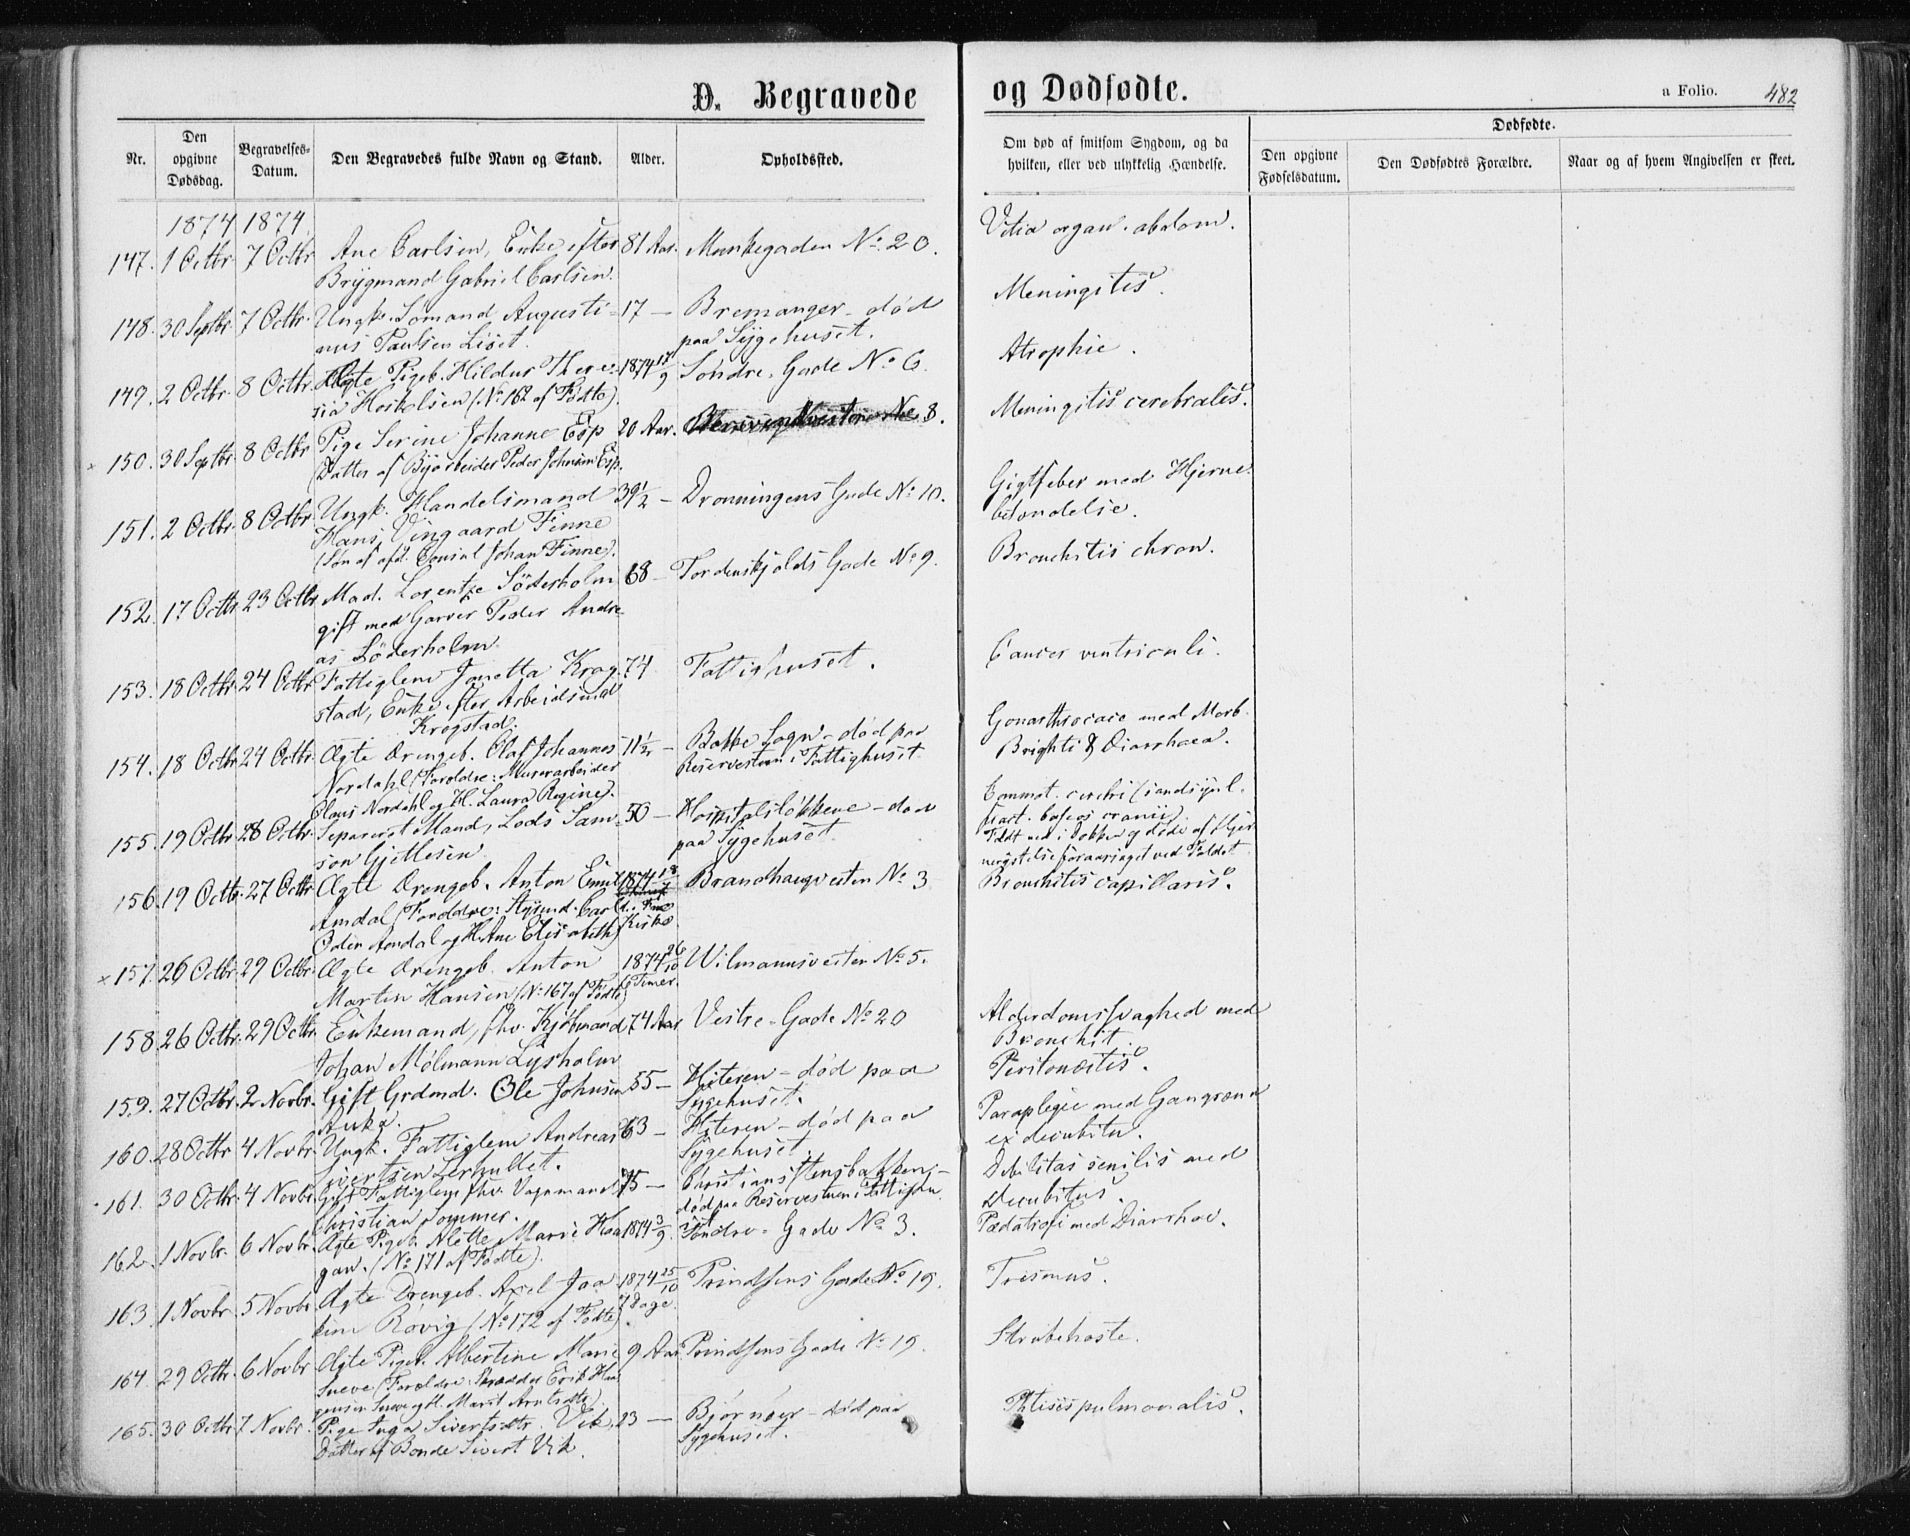 D. Begravede og Dødfødte.
a Folio. 482
Nr.
Den opgivne Dødsdag.
Begravelses-Datum.
Den Begravedes fulde Navn og Stand.
Alder.
Opholdssted.
Om død af smitsom Sygdom, og da hvilken, eller ved ulykkelig Hændelse.
Dødfødte.
Den opgivne Fødselsdatum.
Den Dødfødtes Forældre.
Naar og af hvem Angivelsen er skeet.
1874 1874
147. 1 Octbr. 7 Octbr. Ane Carlsen, Enke efter 81 Aar. Munkegaden No. 20. Vitia organ. abdom.
Brygmand Gabriel Carlsen.
148. 30 Septbr. 7 Octbr. Ungk. Sømand Augusti- 17 — Bremanger - død Meningitis.
nus Paulsen Liset. paa Sygehuset.
149. 2 Octbr. 8 Octbr. Ægte Pigeb. Hildur There- 1874 17/9 Søndre-Gade No 6. Atrophie.
sia Hoskelsen (No. 162 af Fødte).
150. 30 Septbr. 8 Octbr. Pige Serine Johanne Esp 20 Aar. 8. Meningitis cerebralis.
(Datter af Byarbeider Peder Johnsen Esp.
151. 2 Octbr. 8 Octbr. Ungk. Handelsmand 39 1/2 — Dronningens Gade No 10. Gigtfeber med Hjerne-
Hans Vingaard Finne betændelse.
(Søn af afd. Consul Johan Finne).
152. 17 Octbr. 23 Octbr. Mad. Lorentze Söderholm 68 — Tordenskjolds Gade No 9. Bronchitis chron.
gift med Garver Peder Andre-
as Söderholm.
153. 18 Octbr. 24 Octbr. Fattiglem Jonetta Krog- 74 Fattighuset. Cancer ventriculi.
stad, Enke efter Arbeidsmd
Krogstad.
154. 18 Octbr. 24 Octbr. Ægte Drengeb. Olaf Johannes 11 1/2 — Bakke Sogn - død paa Gonarthrocace med Morb.
Nordahl (Forældre: Murerarbeider Reservestuen i Fattighuset Brighti & Diarrhoea.
Claus Nordahl og H. Laura Regine).
155. 19 Octbr. 28 Octbr. Separeret Mand, Lods Sam- 50 — Hospitalsløkkene - død Commot. cerebri (sandsynl.
son Gjetlesen paa Sygehuset. fract. baseos cranii)
Faldt ned i Dokken og døde af Hjer-
nerystelse foraarsaget ved Faldet.
156. 19 Octbr. 27 Octbr. Ægte Drengeb. Anton Emil 1874 Brandhaugveiten No. 3 Bronchitis capillaris.
Amdal (Forældre: Carl
Odin Amdal og H. Ane Elisabeth) Kirke
157. 26 Octbr. 29 Octbr. Ægte Drengeb. Anton 1874 26/10 Wilmannsveiten No 5.
Martin Hansen (No. 167 af Fødte) 6 Timer.
158. 26 Octbr. 29 Octbr. Enkemand, fhv. Kjøbmand 74 Aar Vestre-Gade No 20 Alderdomssvaghed med
Johan Mölmann Lysholm Bronchit.
159. 27 Octbr. 2 Novbr. Gift Grdmd. Ole Johnsen 55 — Hiteren - død paa Peritonæitis.
Auka. Sygehuset.
160. 28 Octbr. 4 Novbr. Ungk. Fattiglem Andreas 63 — Hiteren - død paa Paraplegie med Gangræna
Sivertsen Sygehuset. ex decubitu.
161. 30 Octbr. 4 Novbr. Gift Fattiglem fhv. Vognmand 75 — Christianstensbakken - Debilitas senilis med
Christian Sommer. død paa Reservestuen i Decubitus.
162. 1 Novbr. 6 Novbr. Ægte Pigeb. Alette Marie Haa- 1874 3/9. Søndre-Gade No. 3. Pædatrofi med Diarrhoe.
gan. (No 171 af Fødte).
163. 1 Novbr. 5 Novbr. Ægte Drengeb. Axel Joa- 1874 25/10 Prindsens Gade No 19. Trismus.
kim Røvig (No 172 af Fødte). 7 Dage.
164. 29 Octbr. 6 Novbr. Ægte Pigeb. Albertine Marie 9 Aar Prindsens Gade No 19. Strubehoste.
Sneve (Forældre: Skrædder Erik
Sneve og H. Marit Arntsdtr.)
165. 30 Octbr. 7 Novbr. Pige Inga Sivertsdtr. Vik, 23 — Bjørnøer - død paa Phtisis pulmonalis.
Datter af Bonde Sivert Vik. Sygehuset.